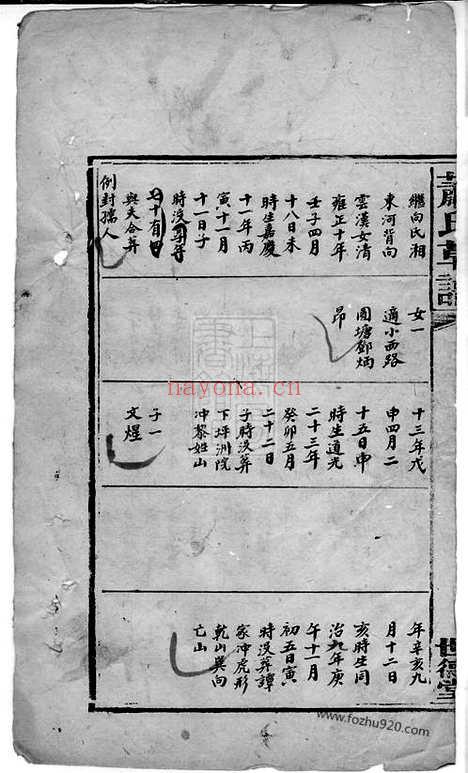 氏草譜
繼向氏湘
東河背向
雲漢女清
雍正十年
壬子四月
十八日未
時生嘉慶
十一年丙
寅十一月
十一日子
時沒
七十有四
與夫合葬
例封孺人
女一
適小西路
圓塘鄧炳
昂
十三年戊
申四月二
十五日申
時生道光
二十三年
癸卯五月
二十二日
子時沒葬
下坪洲院
冲黎姓山
子一
文煋
年辛亥九
月十二日
亥時生同
治九年庚
午十一月
初五日寅
時沒葬譚
家冲虎形
乾山巽向
亡山
世德堂
hayona.com
www.fozhu920.com